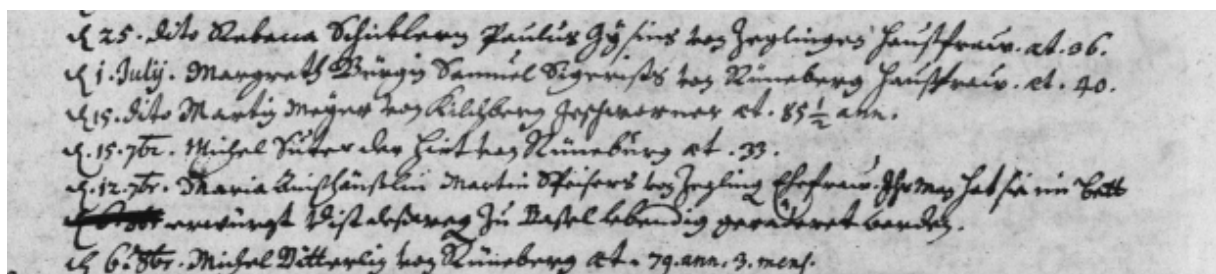 d 25. dito Rebecca Schüblern Paulus Gÿsins von Zeglingen Haußfrauw. æt. 36.
d 1. Julij. Margreth Bürgin Samuel Sigerists von Rüneberg Haußfrauw. æt. 40.
d 15. dito Martin Meÿer von Kilchberg Geschworner æt. 85 1/2 ann.
d. 15. 7br. Michel Suter der Hirt von Rüneburg æt. 33.
d. 12. 7br. Maria Martin Speisers von Zegling Ehefrauw. Ihr Man hat sie im Bett
erwürgt Vist deßweg zu Basel lebendig geräderet worden.
d 6. 8br. Michel Ditterlin von Rüneberg æt. 79. ann. 3. mens.